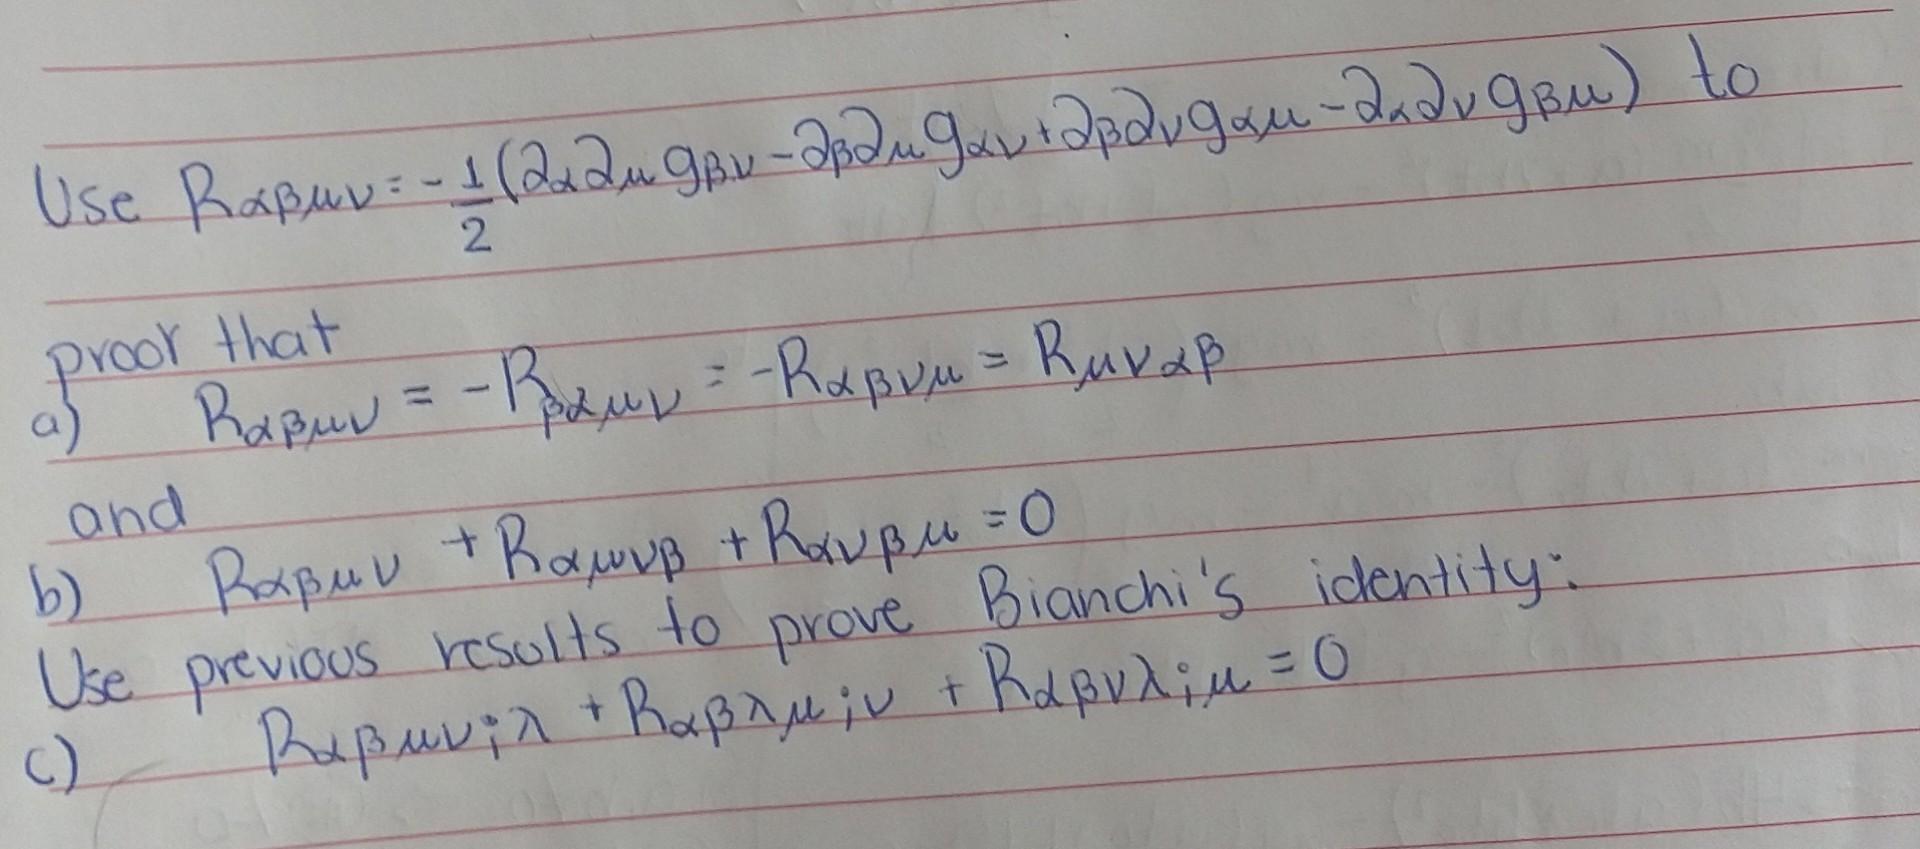 Use Rαβμν = -1/2 (∂α∂μ gβν - ∂β∂μ gαν + ∂β∂ν gαμ - ∂α∂ν gβμ) to
proof that
a) Rαβμν = -Rβαμν = -Rαβνμ = Rμναβ
and
b) Rαβμν + Rαμνβ + Rανβμ = 0
Use previous results to prove Bianchi's identity:
c) Rαβμν;λ + Rαβλμ;ν + Rαβνλ;μ = 0